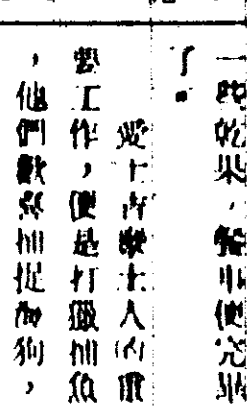 一些乾果，便完畢
了。
愛士古土人的重
要工作，便是打獵捕魚
，他們歡喜捕捉海狗，